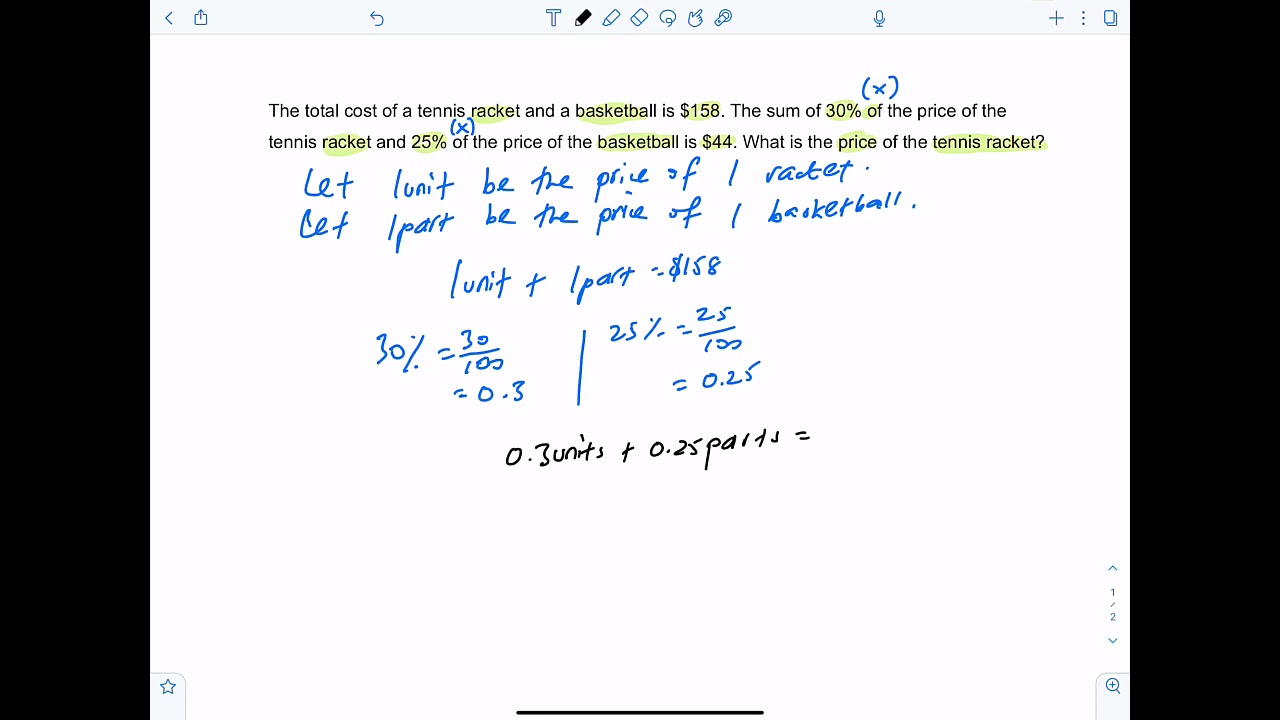 (x)
The total cost of a tennis racket and a basketball is $158. The sum of 30% of the price of the
(x)
tennis racket and 25% of the price of the basketball is $44. What is the price of the tennis racket?
Let 1unit be the price of 1 racket.
Let 1part be the price of 1 basketball.
1unit + 1part = $158
30% = 30/100
= 0.3
25% = 25/100
= 0.25
0.3units + 0.25parts =
1
/
2